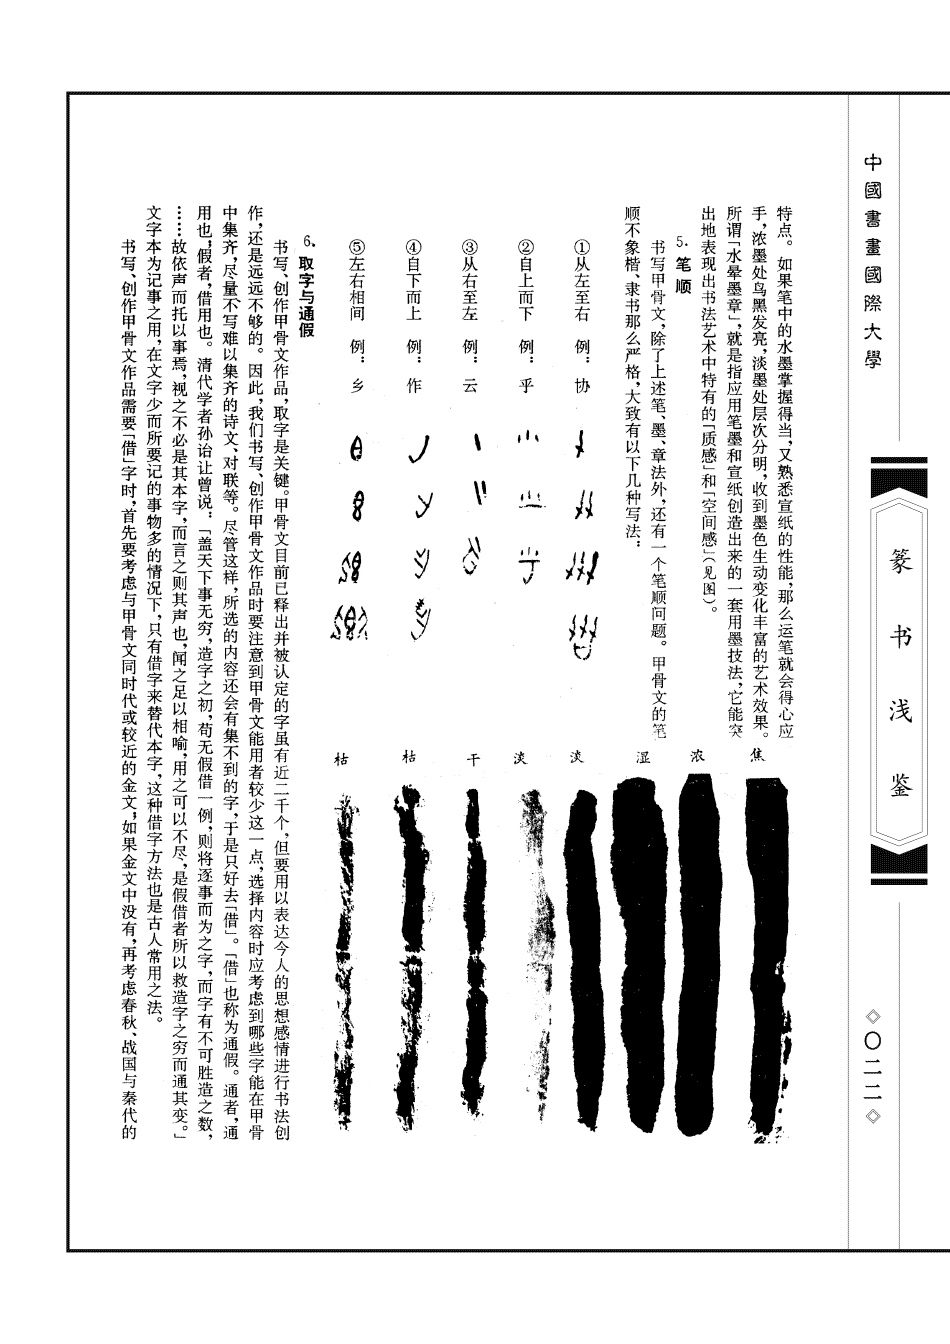 中國書畫國際大學
篆书浅鉴
◇〇二二◇
特点。如果笔中的水墨掌握得当，又熟悉宣纸的性能，那么运笔就会得心应
手，浓墨处乌黑发亮，淡墨处层次分明，收到墨色生动变化丰富的艺术效果。
所谓「水晕墨章」，就是指应用笔墨和宣纸创造出来的一套用墨技法，它能突
出地表现出书法艺术中特有的「质感」和「空间感」（见图）。
5．笔顺
书写甲骨文，除了上述笔、墨、章法外，还有一个笔顺问题。甲骨文的笔
顺不象楷、隶书那么严格，大致有以下几种写法：
①从左至右 例：协
②自上而下 例：乎
③从右至左 例：云
④自下而上 例：作
⑤左右相间 例：乡
焦
浓
湿
淡
淡
干
枯
枯
6．取字与通假
书写、创作甲骨文作品，取字是关键。甲骨文目前已释出并被认定的字虽有近二千个，但要用以表达今人的思想感情进行书法创
作，还是远远不够的。因此，我们书写、创作甲骨文作品时要注意到甲骨文能用者较少这一点，选择内容时应考虑到哪些字能在甲骨
中集齐，尽量不写难以集齐的诗文、对联等。尽管这样，所选的内容还会有集不到的字，于是只好去「借」。「借」也称为通假。通者，通
用也，假者，借用也。清代学者孙诒让曾说：「盖天下事无穷，造字之初，苟无假借一例，则将逐事而为之字，而字有不可胜造之数，
……故依声而托以事焉，视之不必是其本字，而言之则其声也，闻之足以相喻，用之可以不尽，是假借者所以救造字之穷而通其变。」
文字本为记事之用，在文字少而所要记的事物多的情况下，只有借字来替代本字，这种借字方法也是古人常用之法。
书写、创作甲骨文作品需要「借」字时，首先要考虑与甲骨文同时代或较近的金文，如果金文中没有，再考虑春秋、战国与秦代的